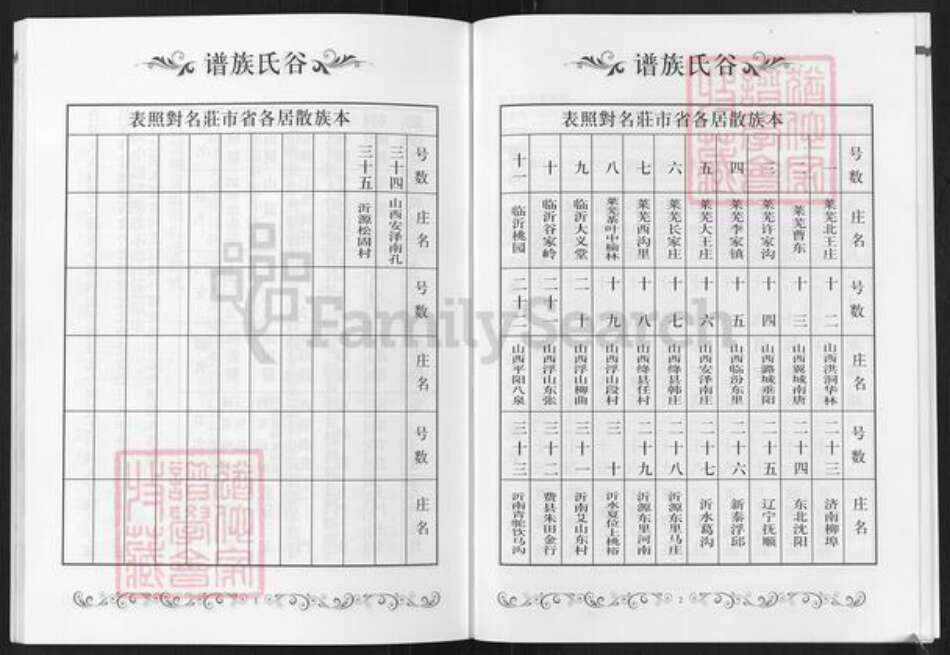 谷氏族谱
本族散居各省市莊名對照表
号数
一
二
三
四
五
六
七
八
九
十
十一
庄名
莱芜北王庄
莱芜曹东
莱芜许家沟
莱芜李家镇
莱芜大王庄
莱芜长家庄
莱芜西沟里
莱芜茶叶中榆林
临沂大义堂
临沂谷家岭
临沂桃园
号数
十二
十三
十四
十五
十六
十七
十八
十九
二十
二十一
二十二
庄名
山西洪洞华林
山西翼城南唐
山西潞城垂阳
山西临汾东里
山西安泽南庄
山西绛县韩庄
山西绛县任村
山西浮山段村
山西浮山柳曲
山西浮山东张
山西平阳八泉
号数
二十三
二十四
二十五
二十六
二十七
二十八
二十九
三十
三十一
三十二
三十三
庄名
济南柳埠
东北沈阳
辽宁抚顺
新泰浮邱
沂水葛沟
沂源东里马庄
沂源东里河南
沂水夏位上桃峪
沂南艾山东村
费县朱田金行
沂南青驼饮马沟
2
猶他家譜學會特藏
谷氏族谱
本族散居各省市莊名對照表
号数
三十四
三十五
庄名
山西安泽南孔
沂源松固村
号数
庄名
号数
庄名
猶他家譜學會特藏
FamilySearch